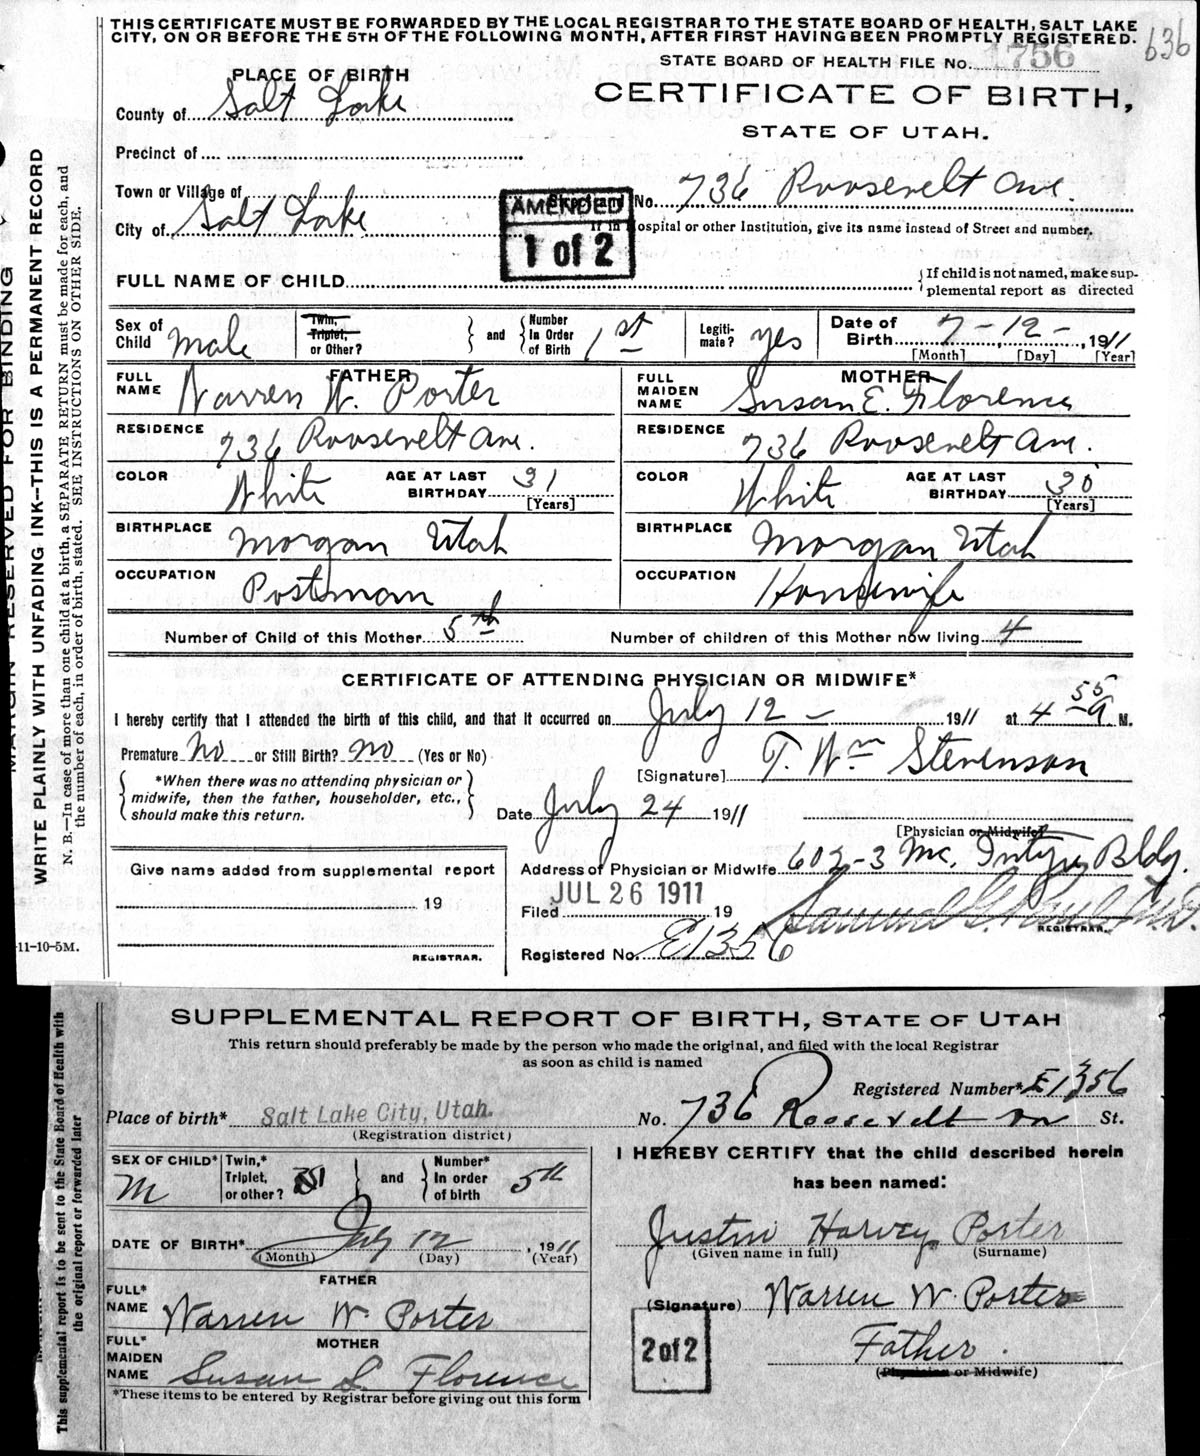 THIS CERTIFICATE MUST BE FORWARDED BY THE LOCAL REGISTRAR TO THE STATE BOARD OF HEALTH, SALT LAKE
CITY, ON OR BEFORE THE 5TH OF THE FOLLOWING MONTH, AFTER FIRST HAVING BEEN PROMPTLY REGISTERED.
636
STATE BOARD OF HEALTH FILE No. 1756
PLACE OF BIRTH
CERTIFICATE OF BIRTH,
STATE OF UTAH.
County of Salt Lake
Precinct of
Town or Village of
No. 736 Roosevelt Ave.
City of Salt Lake
If in Hospital or other Institution, give its name instead of Street and number.
AMENDED
1 of 2
FULL NAME OF CHILD
{If child is not named, make sup-
plemental report as directed
Sex of Child Male
Twin, Triplet, or Other?
and
Number In Order of Birth 1st
Legiti-mate? yes
Date of Birth 7-12-, 1911
[Month] [Day] [Year]
FATHER
FULL NAME Warren W. Porter
RESIDENCE 736 Roosevelt Ave.
COLOR White
AGE AT LAST BIRTHDAY 31
[Years]
BIRTHPLACE Morgan Utah
OCCUPATION Postman
MOTHER
FULL MAIDEN NAME Susan E. Florence
RESIDENCE 736 Roosevelt Ave.
COLOR White
AGE AT LAST BIRTHDAY 30
[Years]
BIRTHPLACE Morgan Utah
OCCUPATION Housewife
Number of Child of this Mother 5th
Number of children of this Mother now living 4
CERTIFICATE OF ATTENDING PHYSICIAN OR MIDWIFE*
I hereby certify that I attended the birth of this child, and that it occurred on July 12 - 1911 at 4 55 A. M.
Premature No or Still Birth? No (Yes or No)
*When there was no attending physician or
midwife, then the father, householder, etc.,
should make this return.
[Signature] T. Wm Stevenson
Date July 24 1911
[Physician or Midwife]
Address of Physician or Midwife 602-3 Mc. Intyre Bldg.
Give name added from supplemental report
19
REGISTRAR.
Filed JUL 26 1911 19
REGISTRAR.
Registered No. E1356
11-10-5M.
MARGIN RESERVED FOR BINDING
WRITE PLAINLY WITH UNFADING INK—THIS IS A PERMANENT RECORD
N. B.—In case of more than one child at a birth, a SEPARATE RETURN must be made for each, and
the number of each, in order of birth, stated. SEE INSTRUCTIONS ON OTHER SIDE.
SUPPLEMENTAL REPORT OF BIRTH, STATE OF UTAH
This return should preferably be made by the person who made the original, and filed with the local Registrar
as soon as child is named
Registered Number* E1356
Place of birth* Salt Lake City, Utah.
(Registration district)
No. 736 Roosevelt Av St.
SEX OF CHILD* M
Twin,* Triplet, or other?
and
Number* In order of birth 5th
DATE OF BIRTH* July 12, 1911
(Month) (Day) (Year)
FATHER
FULL* NAME Warren W. Porter
MOTHER
FULL* MAIDEN NAME Susan Florence
*These items to be entered by Registrar before giving out this form
I HEREBY CERTIFY that the child described herein
has been named:
Justin Harvey Porter
(Given name in full) (Surname)
(Signature) Warren W. Porter
Father.
(Physician or Midwife)
2 of 2
This supplemental report is to be sent to the State Board of Health with
the original report or forwarded later